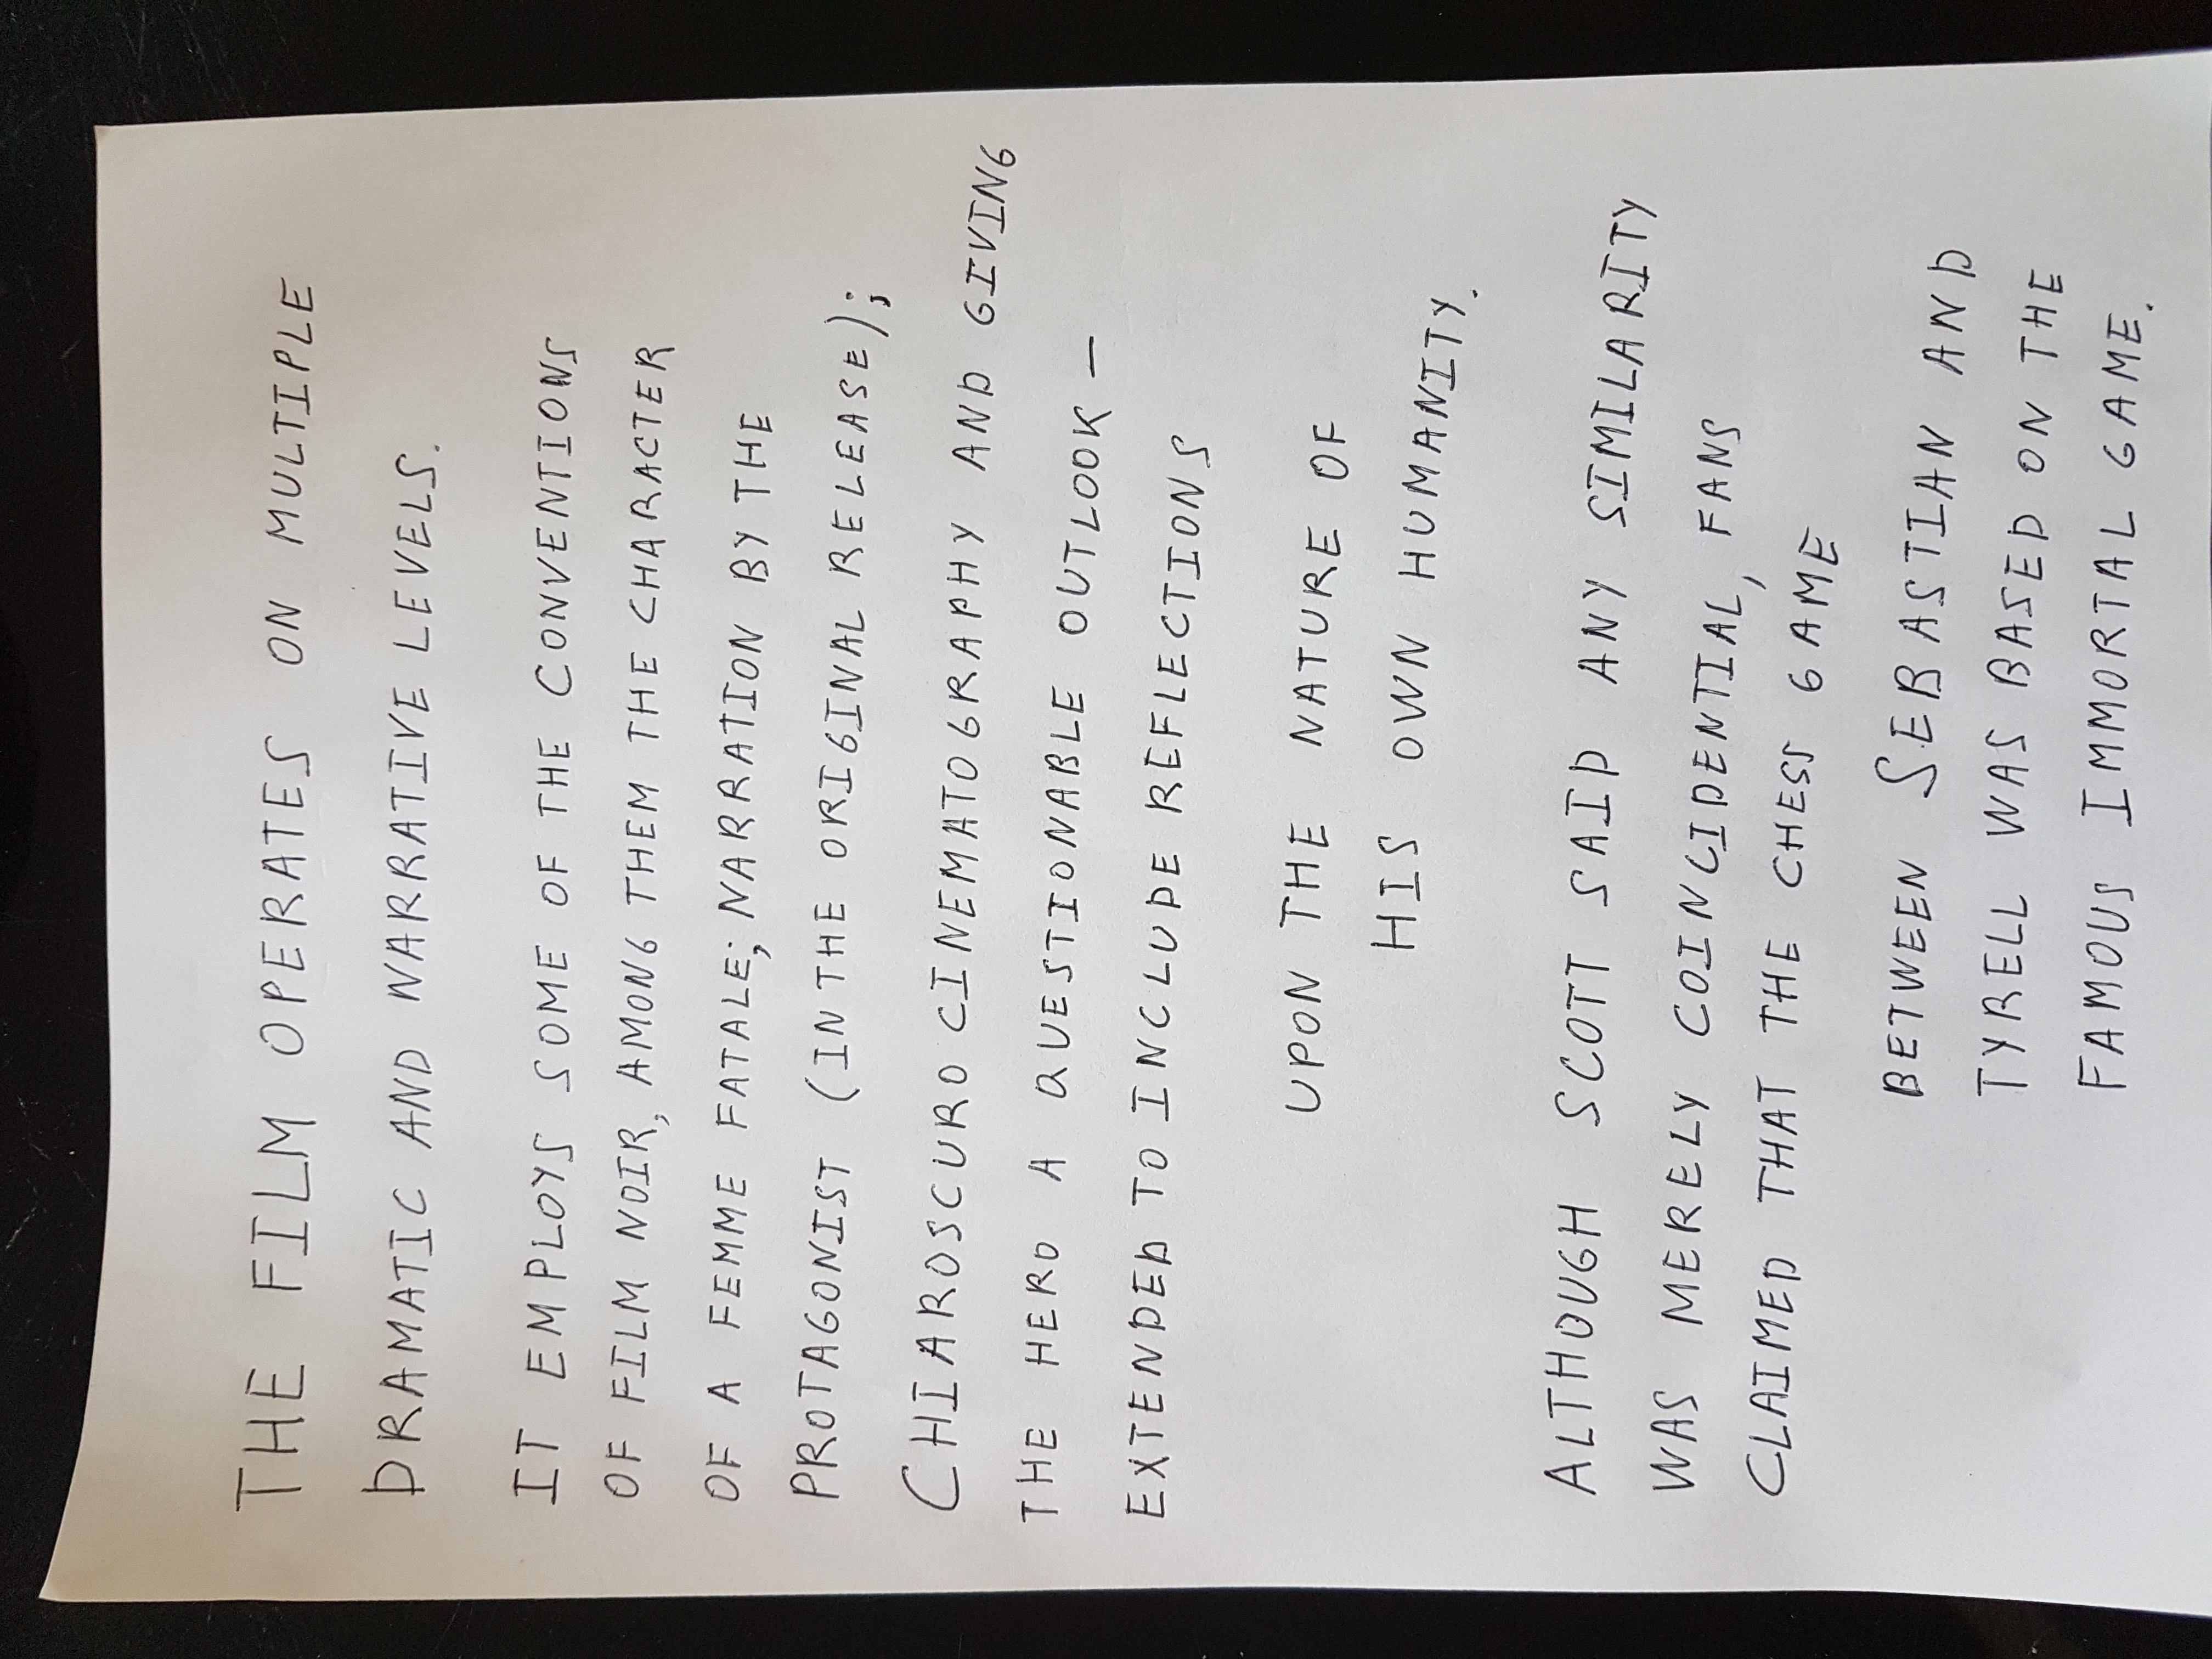 THE FILM OPERATES ON MULTIPLE
DRAMATIC AND NARRATIVE LEVELS.
IT EMPLOYS SOME OF THE CONVENTIONS
OF FILM NOIR, AMONG THEM THE CHARACTER
OF A FEMME FATALE; NARRATION BY THE
PROTAGONIST (IN THE ORIGINAL RELEASE);
CHIAROSCURO CINEMATOGRAPHY AND GIVING
THE HERO A QUESTIONABLE OUTLOOK –
EXTENDED TO INCLUDE REFLECTIONS
UPON THE NATURE OF
HIS OWN HUMANITY.
ALTHOUGH SCOTT SAID ANY SIMILARITY
WAS MERELY COINCIDENTIAL, FANS
CLAIMED THAT THE CHESS GAME
BETWEEN SEBASTIAN AND
TYRELL WAS BASED ON THE
FAMOUS IMMORTAL GAME.